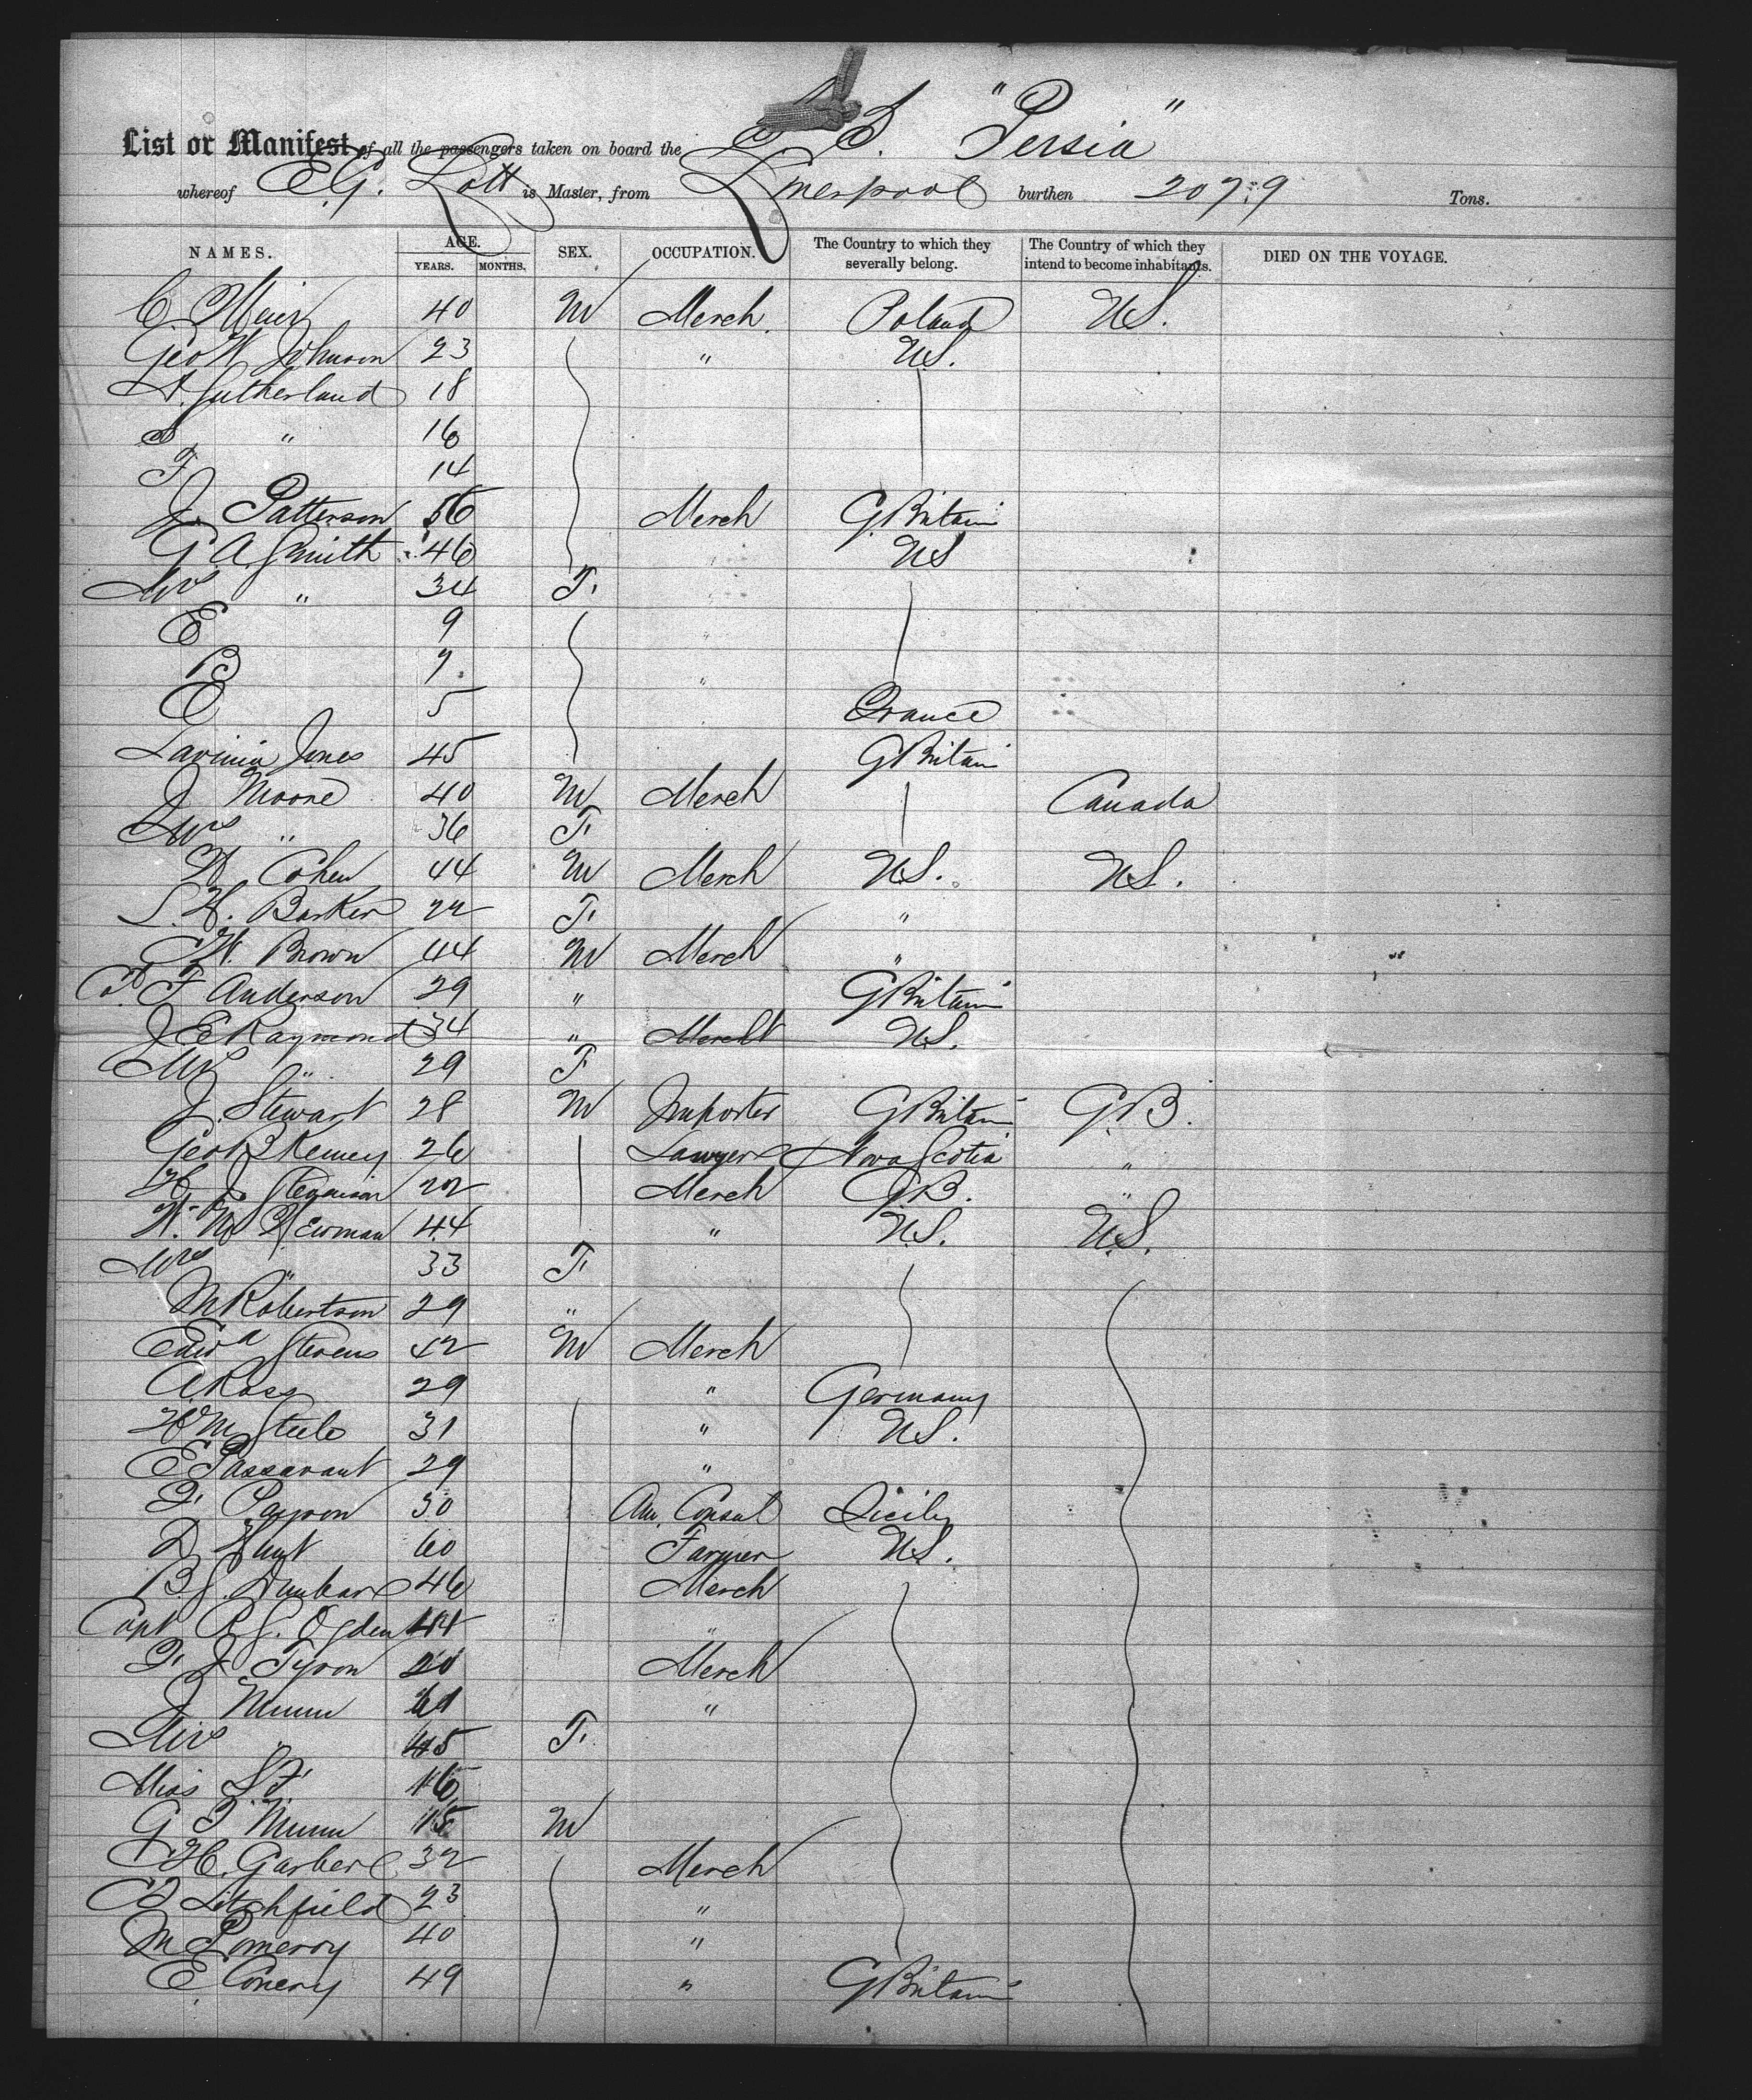 S. S. "Persia"
List or Manifest of all the passengers taken on board the
whereof E.G. Lott is Master, from Liverpool burthen 2079 Tons.
NAMES. AGE. YEARS. MONTHS. SEX. OCCUPATION. The Country to which they severally belong. The Country of which they intend to become inhabitants. DIED ON THE VOYAGE.
C. Meier 40 M Merch. Poland U.S.
Geo W Johnson 23 " U.S.
A. Sutherland 18
S " 16
F 14
J. Patterson 56 Merch G Britain
G. A. Smith 46 US
Mrs " 34 F.
E 9
B 7.
E 5 France
Lavinia Jones 45 G Britain
J Moore 40 M Merch Canada
Mrs " 36 F.
W Cohen 44 M Merch U.S. U.S.
S. H. Barker 22 F. "
C W. Brown 44 M Merch "
Col. F Anderson 29 " G Britain
J E Raymond 34 " Mercht U.S.
Mrs " 29 F
J. Stewart 28 M Importer G Britain G.B.
Geo B Kenney 26 Lawyer Nova Scotia "
H J 22 Merch G.B. "
W. M Newman 44 " U.S. U.S.
Mrs " 33 F.
M Robertson 29 "
Edwd Stevens 42 M Merch
A Ross 29 " Germany
Wm Steele 31 " U.S.
E Passavant 29 "
F. 30 Am. Consul Sicily
D Hunt 60 Farmer U.S.
B. J. Dunbar 46 Merch
Capt R G. Ogden 44 "
F. J Tyson 20 Merch
J Munn 61 "
Mrs " 45 F.
Miss S F 16
G F Munn 15 M
C H. Garber 32 Merch
C Litchfield 23 "
M Pomeroy 40 "
E Conery 49 " G Britain